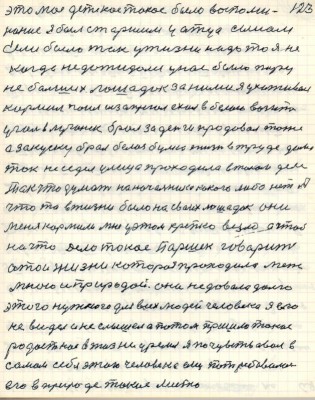 это мое детское такое было воспоми- 123
нание я был старшим у атца сином
если было так у жизни надо то я не
когда недожидал унас было пару
не балших лошадок за ними я ухаживал
кормил поил и запрягал ехал в
угал брал за денги продовал тоже
а закуску брал белая булка жизнь в труде долга
так не сел улица проходила в таком деле
так что думат на начальника какого либо нет А
что то в жизни было на своих лошадок они
меня кормили мне этом крепко везло а чтоб
на что дело такое Паршек говарит
о той жизни которая проходила меж
мною и природой. они недовала долго
этого нужного для всех людей человека я его
не видел и не слышел а потом пришло такое
радостное в жизни время я почуствовал в
самом себя этого человека ему потребовалос
его в природе такие место